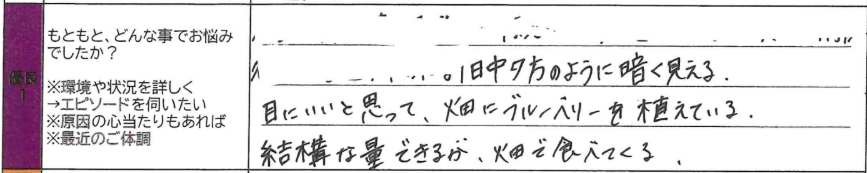 もともと、どんな事でお悩み
でしたか?
※環境や状況を詳しく
→エピソードを伺いたい
※原因の心当たりもあれば
※最近のご体調
優良
1
。1日中夕方のように暗く見える.
目にいいと思って、畑にブルーベリーを植えている.
結構な量できるが、畑で食べてくる.